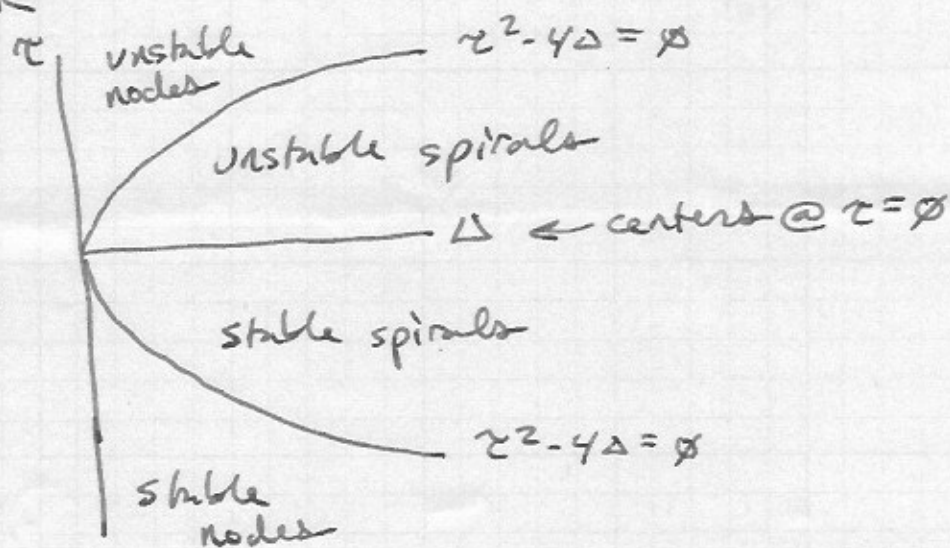 τ
unstable
nodes
τ²-4Δ=∅
unstable spirals
Δ ← centers @ τ=∅
stable spirals
τ²-4Δ=∅
stable
nodes